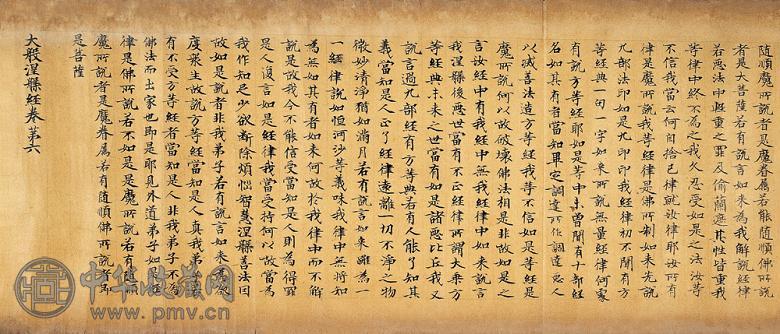 随順魔所說者是魔眷属若能随順佛所說
者是大菩薩若有說言如来為我解說經律
若惡法中輕重之罪及偷蘭遮其性皆重我
等律中終不為之我久忍受如是之法汝等
不信我當云何自捨己律就汝律耶汝所有
律是魔所說我等經律是佛所制如来先說
九部法印如是九印印我經律初不聞有方
等經典一句一字如来所說無量經律何處
有說方等經耶如是等中未曾聞有十部經
名如其有者當知必定調達所作調達惡人
以滅善法造方等經我等不信如是等經是
魔所說何以故破壞佛法相是非故如是之
言汝經中有我經中無我經律中如来說言
我涅槃後惡世當有不正經律所謂大乘方
等經典未来之世當有如是諸惡比丘我又
說言過九部經有方等典若有人能了知其
義當知是人正了經律遠離一切不淨之物
微妙清淨猶如滿月若有說言如来雖為
一經律說如恒河沙等義味我律中無將知
為無如其有者如来何故於我律中而不解
說是故我今不能信受當知是人則為得罪
是人復言如是經律我當受持何以故當為
我作知足少欲斷除煩惱智慧涅槃善法因
故如是說者非我弟子若有說言如来為欲
度衆生故說方等經當知是人真我弟子若
有不受方等經者當知是人非我弟子不為
佛法而出家也即是耶見外道弟子如是經
律是佛所說若不如是是魔所說若有随順
魔所說者是魔眷属若有随順佛所說者即
是菩薩
大般涅槃經卷第六
中华收藏网
www.pmcv.cn